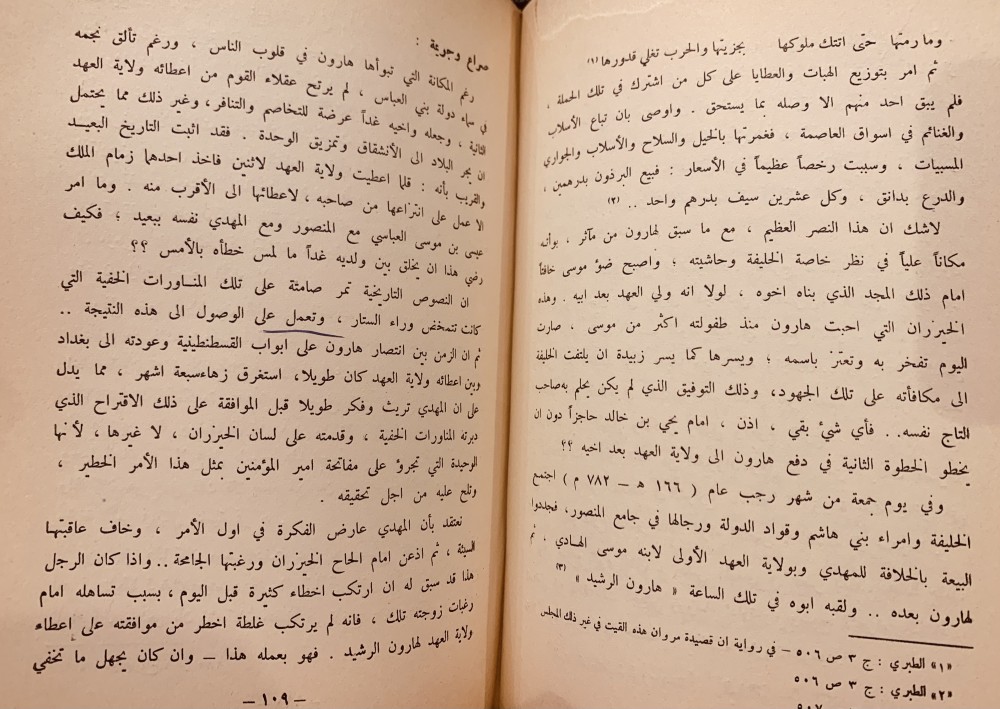 وما رمتها حتى اتتك ملوكها بجزيتها والحرب تغلي قدورها (١)
ثم امر بتوزيع الهبات والعطايا على كل من اشترك في تلك الحملة ،
فلم يبق احد منهم الا وصله بما يستحق . واوصى بان تباع الأسلاب
والغنائم في اسواق العاصمة ، فغمرتها بالخيل والسلاح والأسلاب والجواري
المسبيات ، وسببت رخصاً عظيماً في الأسعار : فبيع البرذون بدرهمين ،
والدرع بدانق ، وكل عشرين سيف بدرهم واحد .. (٢)
لاشك ان هذا النصر العظيم ، مع ما سبق لهارون من مآثر ، بوأته
مكاناً علياً في نظر خاصة الخليفة وحاشيته ؛ واصبح ضوء موسى خافتاً
امام ذلك المجد الذي بناه اخوه ، لولا انه ولي العهد بعد ابيه . وهذه
الخيزران التي احبت هارون منذ طفولته اكثر من موسى ، صارت
اليوم تفخر به وتعتز باسمه ؛ ويسرها كما يسر زبيدة ان يلتفت الخليفة
الى مكافأته على تلك الجهود، وذلك التوفيق الذي لم يكن يحلم به صاحب
التاج نفسه.. فأي شيء بقي ، اذن ، امام يحي بن خالد حاجزاً دون ان
يخطو الخطوة الثانية في دفع هارون الى ولاية العهد بعد اخيه ؟؟
وفي يوم جمعة من شهر رجب عام ( ١٦٦ هـ – ٧٨٢ م ) اجتمع
الخليفة وامراء بني هاشم وقواد الدولة ورجالها في جامع المنصور، فجددوا
البيعة بالخلافة للمهدي وبولاية العهد الأولى لابنه موسى الهادي . ثم
لهارون بعده .. ولقبه ابوه في تلك الساعة « هارون الرشيد » (٣)
«١» الطبري : ج ٣ ص ٥٠٦ – في رواية ان قصيدة مروان هذه القيت في غير ذلك المجلس
«٢» الطبري : ج ٣ ص ٥٠٦
صراع وجريمة :
رغم المكانة التي تبوأها هارون في قلوب الناس ، ورغم تألق نجمه
في سماء دولة بني العباس ، لم يرتح عقلاء القوم من اعطائه ولاية العهد
الثانية ، وجعله واخيه غداً عرضة للتخاصم والتنافر، وغير ذلك مما يحتمل
ان يجر البلاد الى الأنشقاق وتمزيق الوحدة . فقد اثبت التاريخ البعيد
والقريب بأنه : قلما اعطيت ولاية العهد لاثنين فاخذ احدهما زمام الملك
الا عمل على انتزاعها من صاحبه ، لاعطائها الى الأقرب منه . وما امر
عيسى بن موسى العباسي مع المنصور ومع المهدي نفسه ببعيد ؛ فكيف
رضي هذا ان يخلق بين ولديه غداً ما لمس خطأه بالأمس ؟؟
ان النصوص التاريخية تمر صامتة على تلك المناورات الخفية التي
كانت تتمخض وراء الستار ، وتعمل على الوصول الى هذه النتيجة ..
ثم ان الزمن بين انتصار هارون على ابواب القسطنطينية وعودته الى بغداد
وبين اعطائه ولاية العهد كان طويلا، استغرق زهاءسبعة اشهر ، مما يدل
على ان المهدي تريث وفكر طويلا قبل الموافقة على ذلك الاقتراح الذي
دبرته المناورات الخفية ، وقدمته على لسان الخيزران ، لا غيرها ، لأنها
الوحيدة التي تجرؤ على مفاتحة امير المؤمنين بمثل هذا الأمر الخطير ،
وتلح عليه من اجل تحقيقه .
نعتقد بأن المهدي عارض الفكرة في اول الأمر ، وخاف عاقبتها
السيئة ، ثم اذعن امام الحاح الخيزران ورغبتها الجامحة .. واذا كان الرجل
هذا قد سبق له ان ارتكب اخطاء كثيرة قبل اليوم ، بسبب تساهله امام
رغبات زوجته تلك ، فانه لم يرتكب غلطة اخطر من موافقته على اعطاء
ولاية العهد لهارون الرشيد . فهو بعمله هذا – وان كان يجهل ما تخفي
– ١٠٩ –